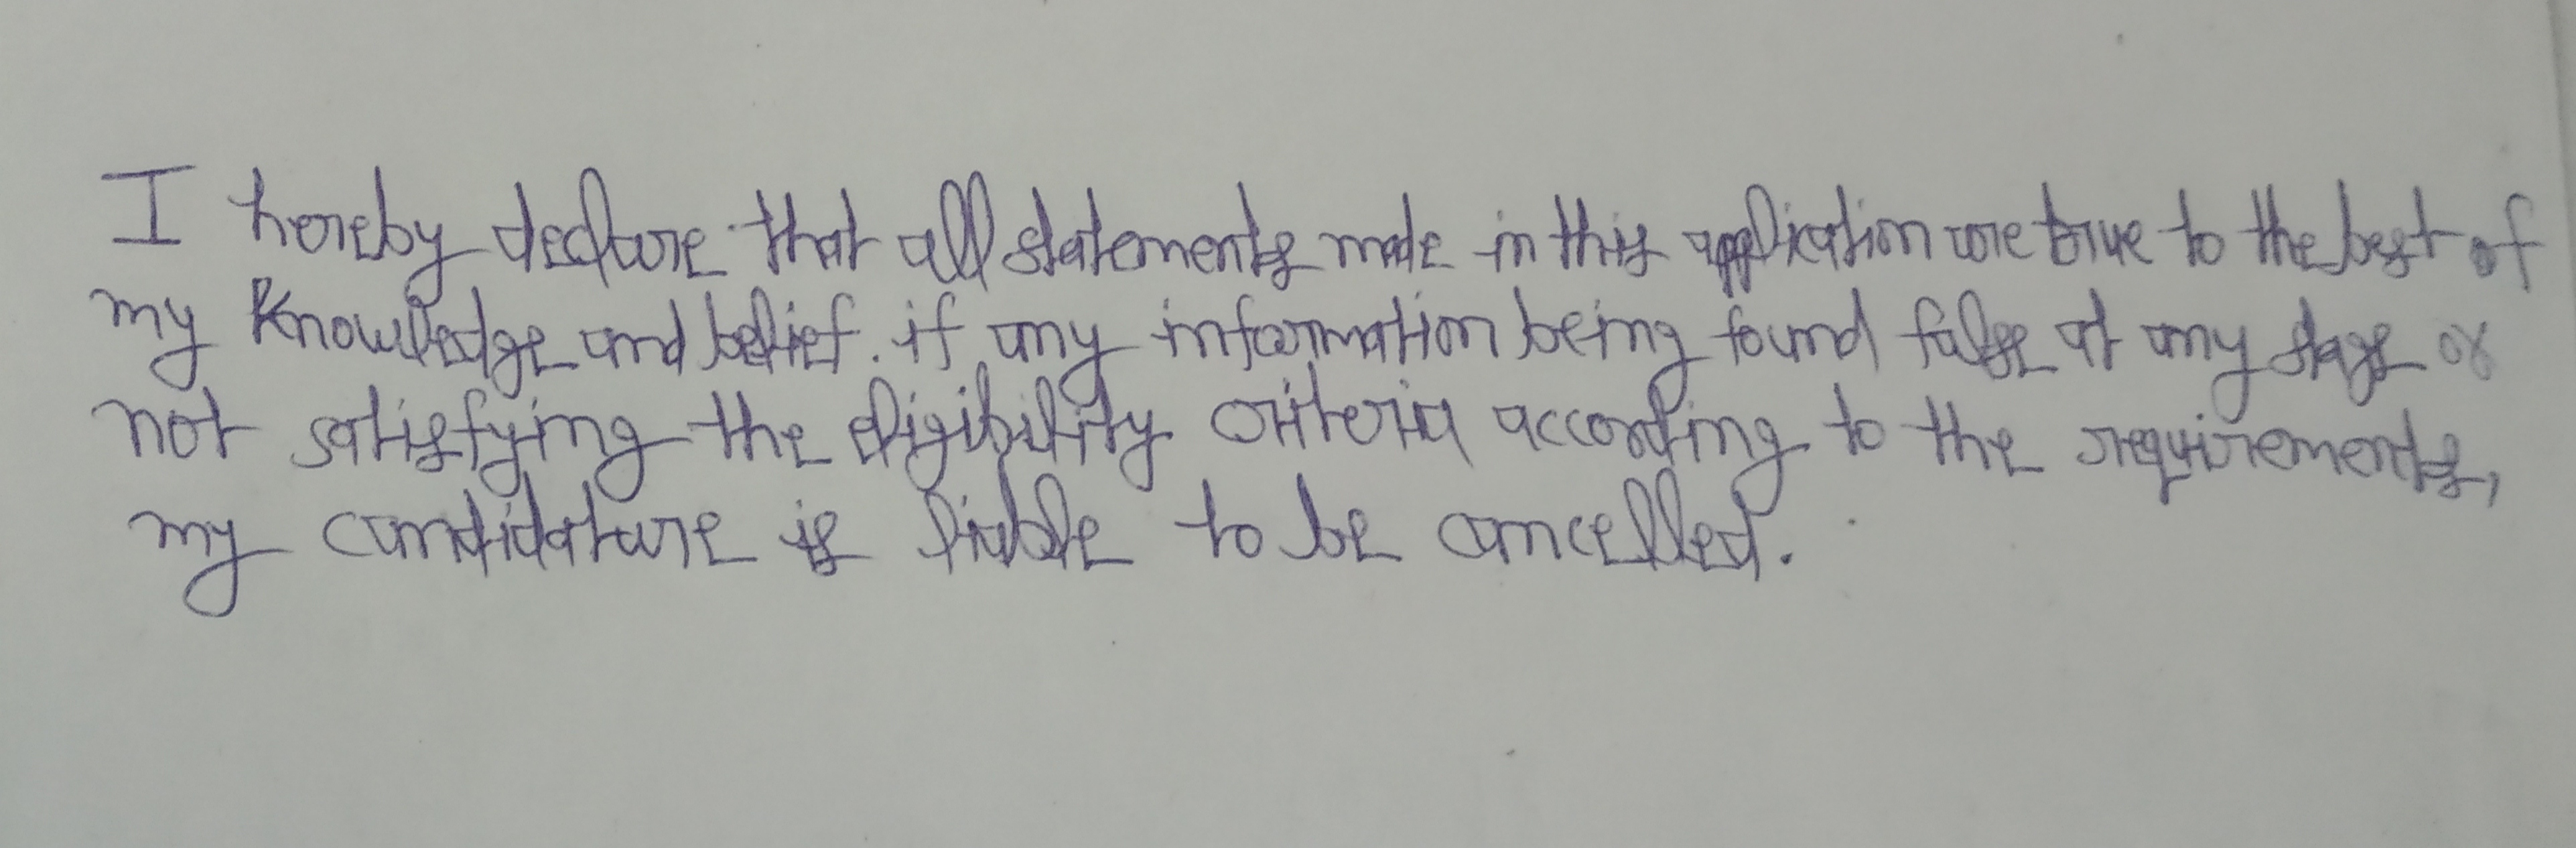 I hereby declare that all statements made in this application are true to the best of
my Knowledge and belief. if any information being found false at any stage or
not satisfying the eligibility criteria according to the requirements,
my candidature is liable to be cancelled.